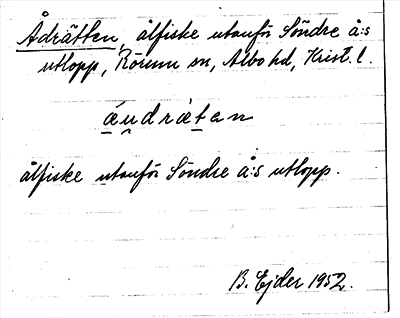 Ådrätten, ålfiske utanför Söndre å:s
utlopp, Rörum sn, Albo hd, Krist. l.
áu̯drȧtan
ålfiske utanför Söndre å:s utlopp.
B. Ejder 1952.